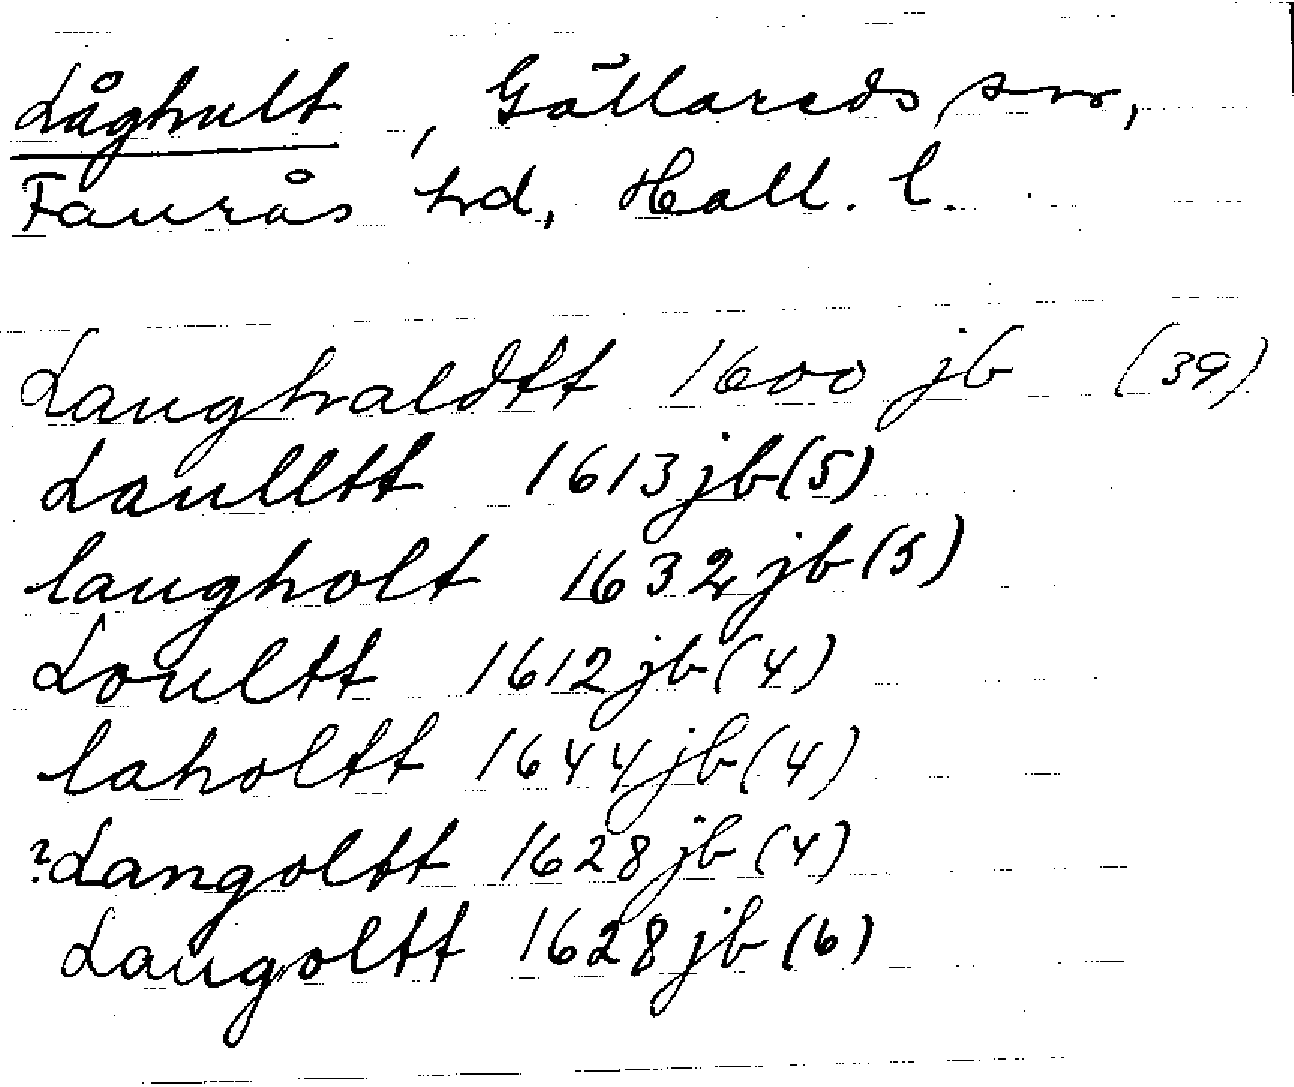 Låghult, Gällareds sn,
Faurås hd, Hall. l.
Laughaldtt 1600 jb (39)
Laulltt 1613 jb (5)
laugholt 1632 jb (5)
Loultt 1612 jb (4)
laholtt 1644 jb (4)
?Langoltt 1628 jb (4)
Laugoltt 1628 jb (6)